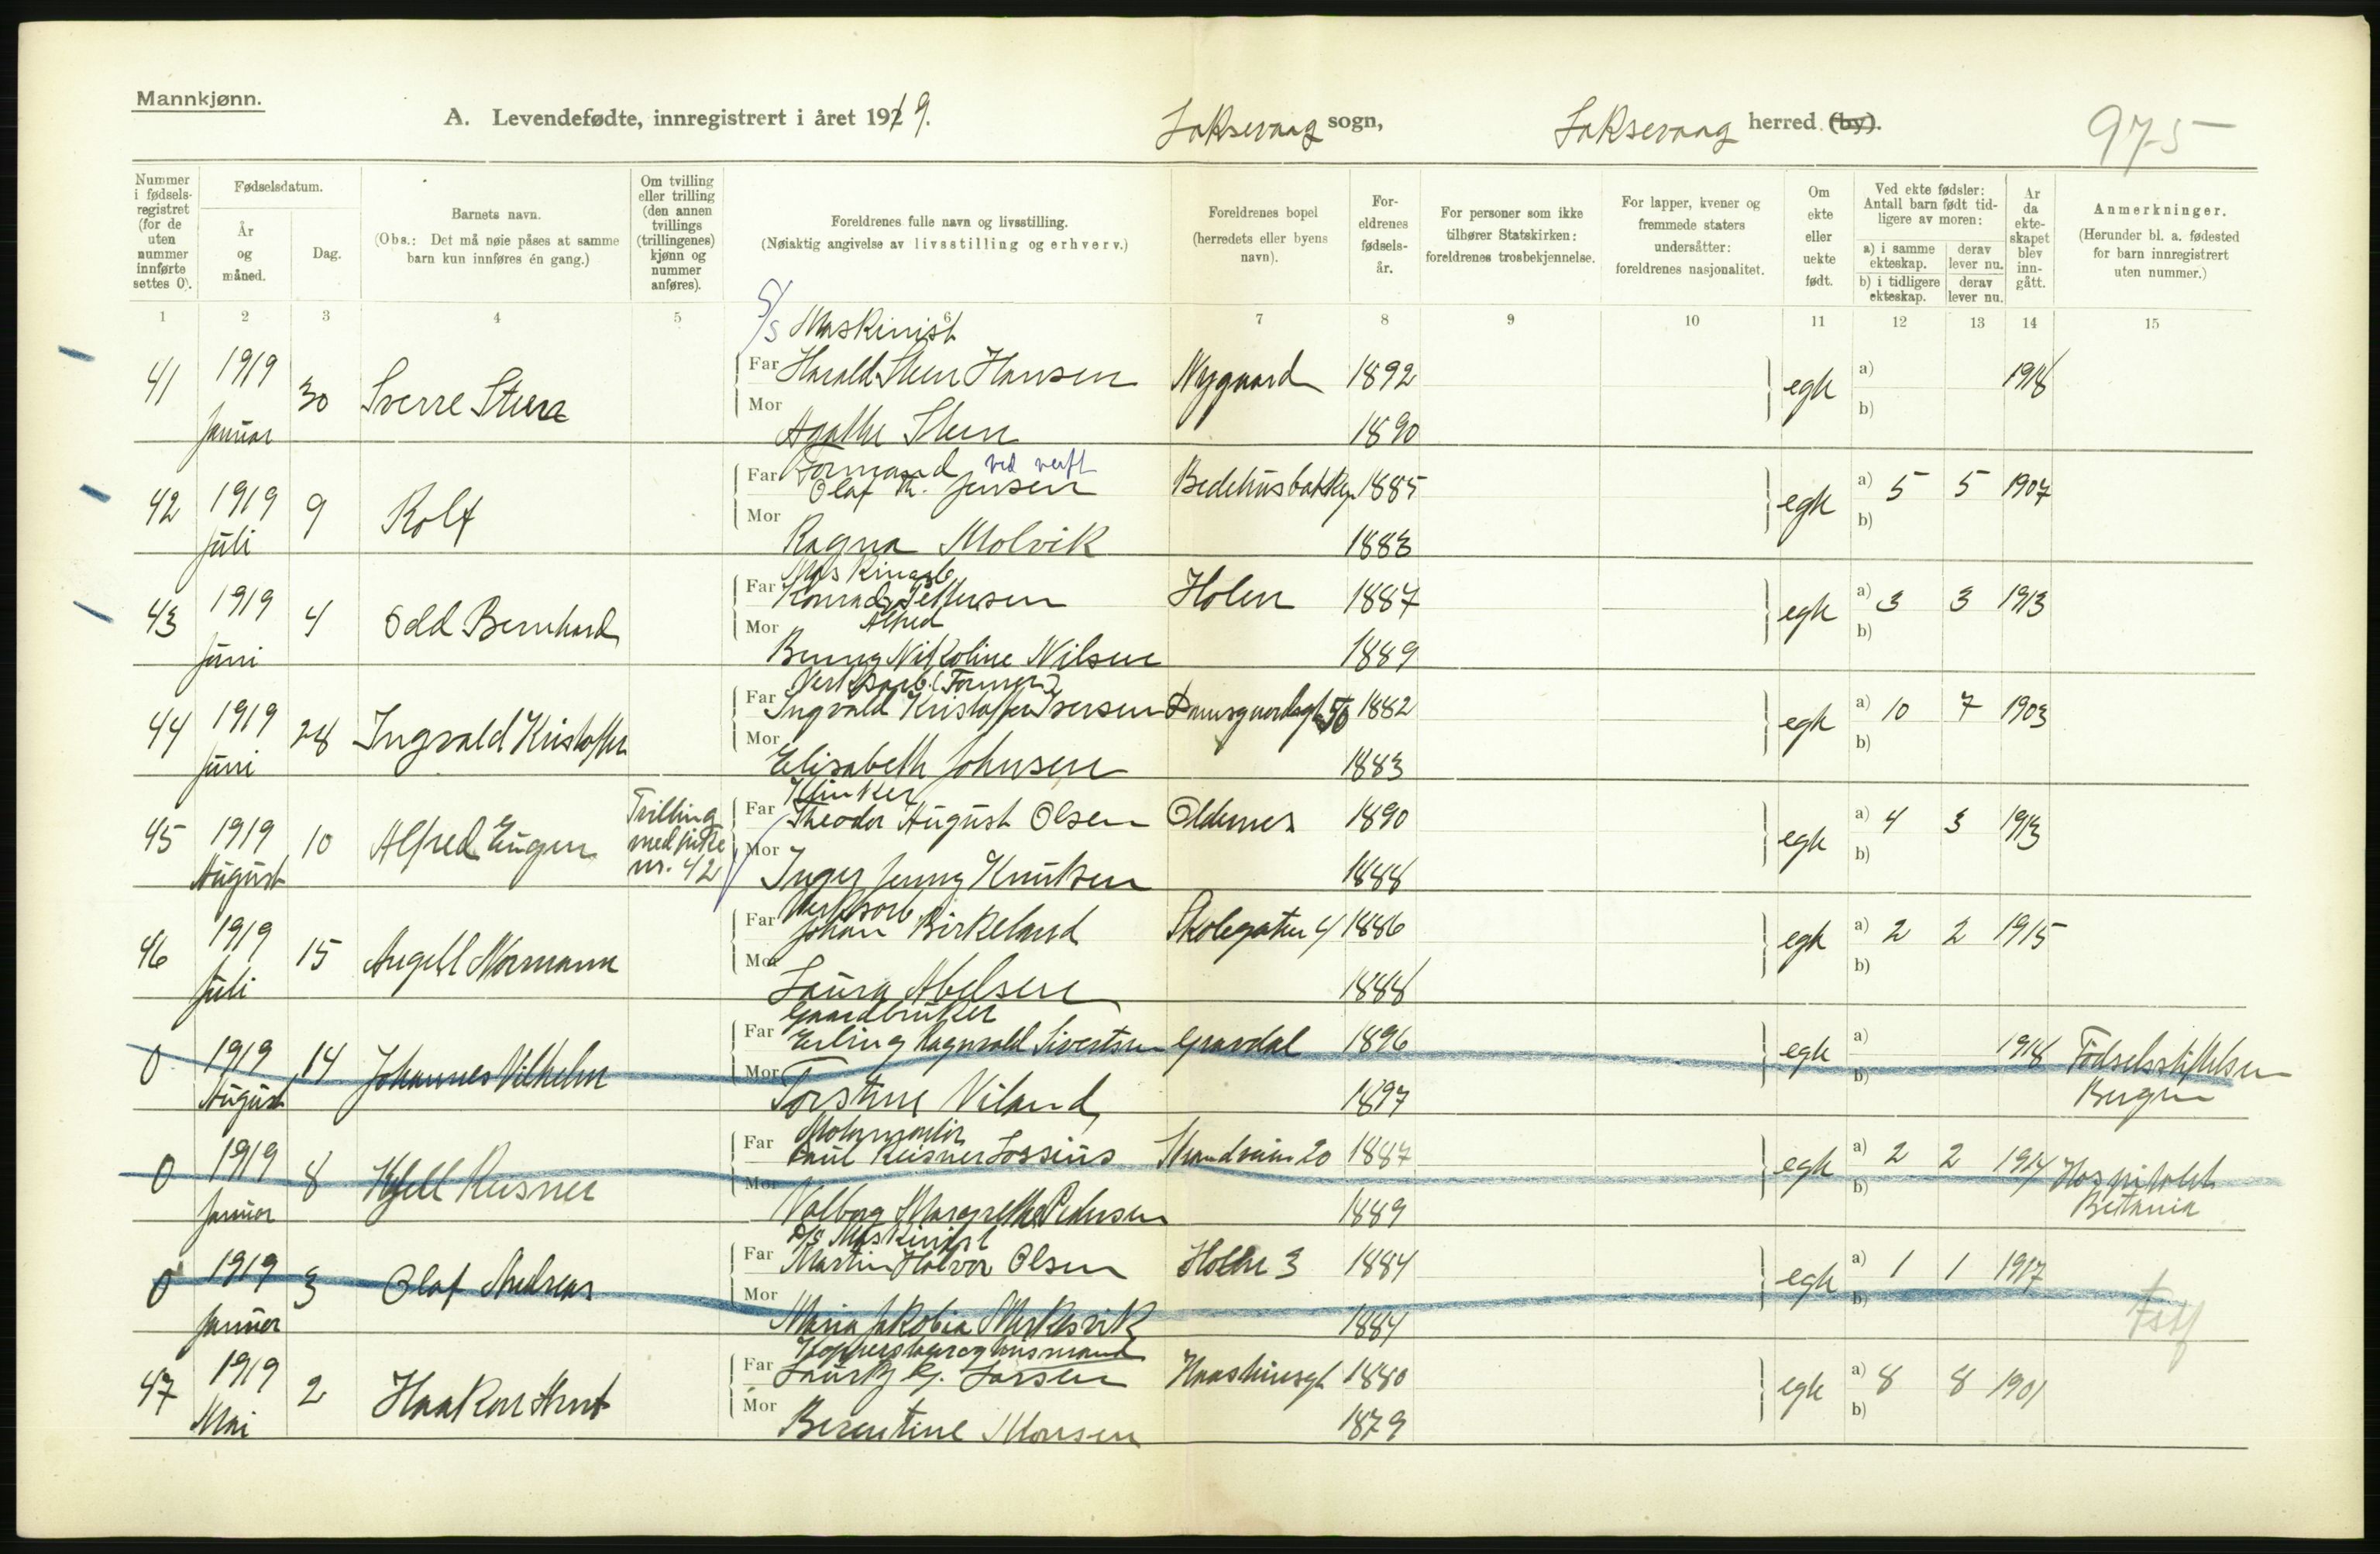 Mannkjønn.
A. Levendefødte, innregistrert i året 1919. Laksevaag sogn, Laksevaag herred (by). 975
Nummer i fødsels-registret (for de uten nummer innførte settes 0).
Fødselsdatum.
År og måned.
Dag.
Barnets navn.
(Obs.: Det må nøie påses at samme barn kun innføres én gang.)
Om tvilling eller trilling (den annen tvillings (trillingenes) kjønn og nummer anføres).
Foreldrenes fulle navn og livsstilling.
(Nøiaktig angivelse av livsstilling og erhverv.)
Foreldrenes bopel (herredets eller byens navn).
For-eldrenes fødsels-år.
For personer som ikke tilhører Statskirken: foreldrenes trosbekjennelse.
For lapper, kvener og fremmede staters undersåtter: foreldrenes nasjonalitet.
Om ekte eller uekte født.
Ved ekte fødsler: Antall barn født tid-ligere av moren:
a) i samme ekteskap. derav lever nu.
b) i tidligere ekteskap. derav lever nu.
År da ekte-skapet blev inn-gått.
Anmerkninger.
(Herunder bl. a. fødested for barn innregistrert uten nummer.)
1 2 3 4 5 6 7 8 9 10 11 12 13 14 15
S/S Maskinist
41 1919 Januar 30 Sverre Steen Far Harald Steen Hansen Nygaard 1892 egte a) b) 1918
Mor Agathe Steen 1890
Formand ved verft
42 1919 Juli 9 Rolf Far Olaf M. Jensen Bedehusbakken 1885 egte a) 5 5 1907 b)
Mor Ragna Molvik 1883
43 1919 Juni 4 Odd Bernhard Far Konrad Alfred Pettersen Holen 1887 egte a) 3 3 1913 b)
Mor Benny Nikoline Nilsen 1889
Verksarb. (Former)
44 1919 Juni 28 Ingvald Kristoffer Far Ingvald Kristoffer Iversen Damsgaardsgt 56 1882 egte a) 10 7 1903 b)
Mor Elisabeth Johnsen 1883
Klinker
45 1919 August 10 Alfred Eugen Trilling med pike nr. 42 Far Theodor August Olsen Oldernes 1890 egte a) 4 3 1913 b)
Mor Inger Jenny Knutsen 1888
Verksarb
46 1919 Juli 15 Angell Normann Far Johan Birkeland Skolegaten 4 1886 egte a) 2 2 1915 b)
Mor Laura Abelsen 1888
Gaardbruker
0 1919 August 14 Johannes Vilhelm Far Erling Ragnvald Sivertsen Gravdal 1896 egte a) b) 1918 Fødselsstiftelsen Bergen
Mor Torstine Viland 1897
0 1919 Januar 8 Kjell Reisner Far Paul Reisner Lossius Strandveien 20 1887 egte a) 2 2 1914 b) Hospitalet Betania
Mor Valborg Margrethe Pedersen 1889
D/S Maskinist
0 1919 Januar 3 Olaf Andreas Far Martin Halvor Olsen Holen 3 1884 egte a) 1 1 1917 b)
Mor Maria Jakobia 1884
47 1919 Mai 2 Haakon Arnt Far Lauritz G. Larsen 1880 egte a) 8 8 1901 b)
Mor Berentine Monsen 1879